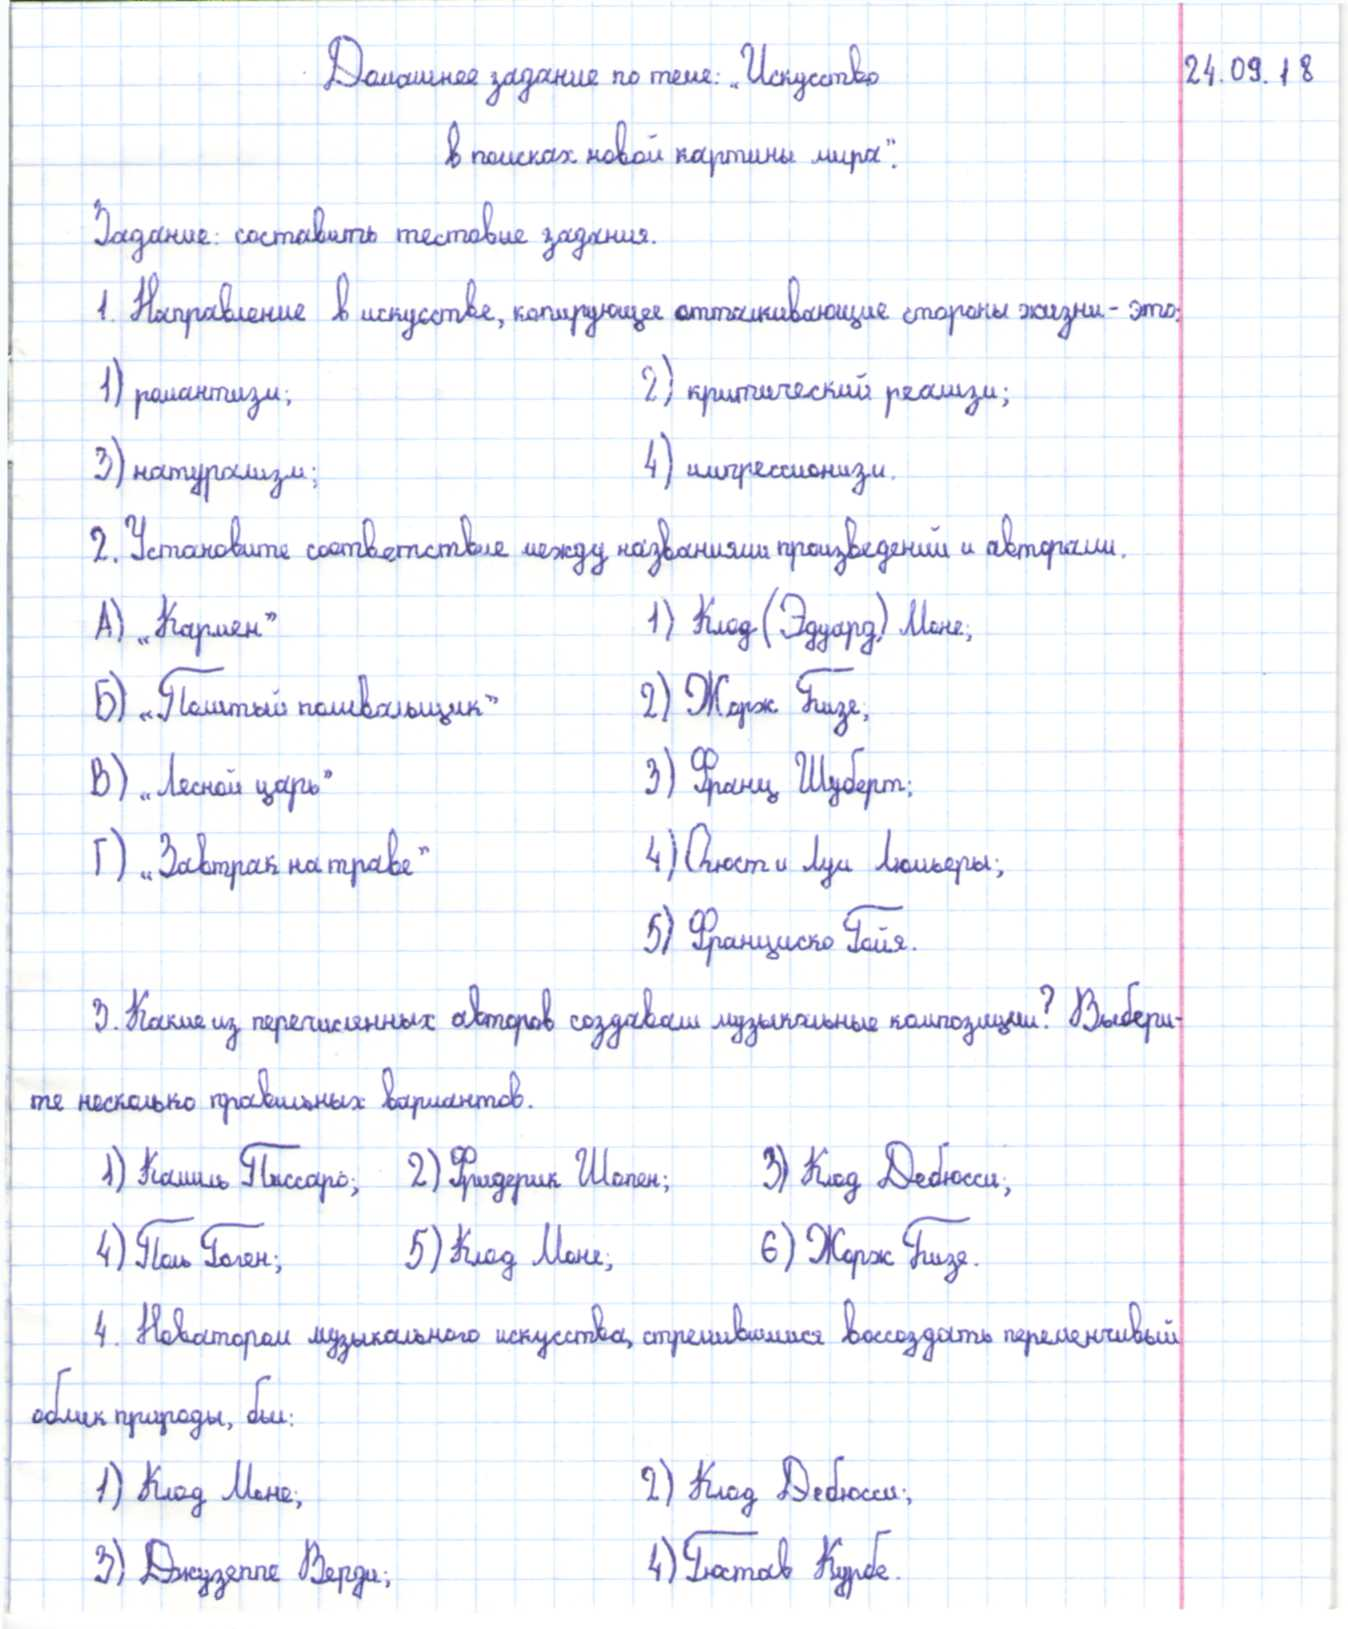 Домашнее задание по теме: „Искусство 24.09.18
в поисках новой картины мира”.
Задание: составить тестовые задания.
1. Направление в искусстве, копирующее отталкивающие стороны жизни - это:
1) романтизм; 2) критический реализм;
3) натурализм; 4) импрессионизм.
2. Установите соответствие между названиями произведений и авторами.
А) „Кармен” 1) Клод (Эдуард) Моне;
Б) „Политый поливальщик” 2) Жорж Бизе;
В) „Лесной царь” 3) Франц Шуберт;
Г) „Завтрак на траве” 4) Огюст и Луи Люмьеры;
5) Франциско Гойя.
3. Какие из перечисленных авторов создавали музыкальные композиции? Выбери-
те несколько правильных вариантов.
1) Камиль Писсаро; 2) Фридерик Шопен; 3) Клод Дебюсси;
4) Поль Гоген; 5) Клод Моне; 6) Жорж Бизе.
4. Новатором музыкального искусства, стремившимся воссоздать переменчивый
облик природы, был:
1) Клод Моне; 2) Клод Дебюсси;
3) Джузеппе Верди; 4) Гюстав Курбе.